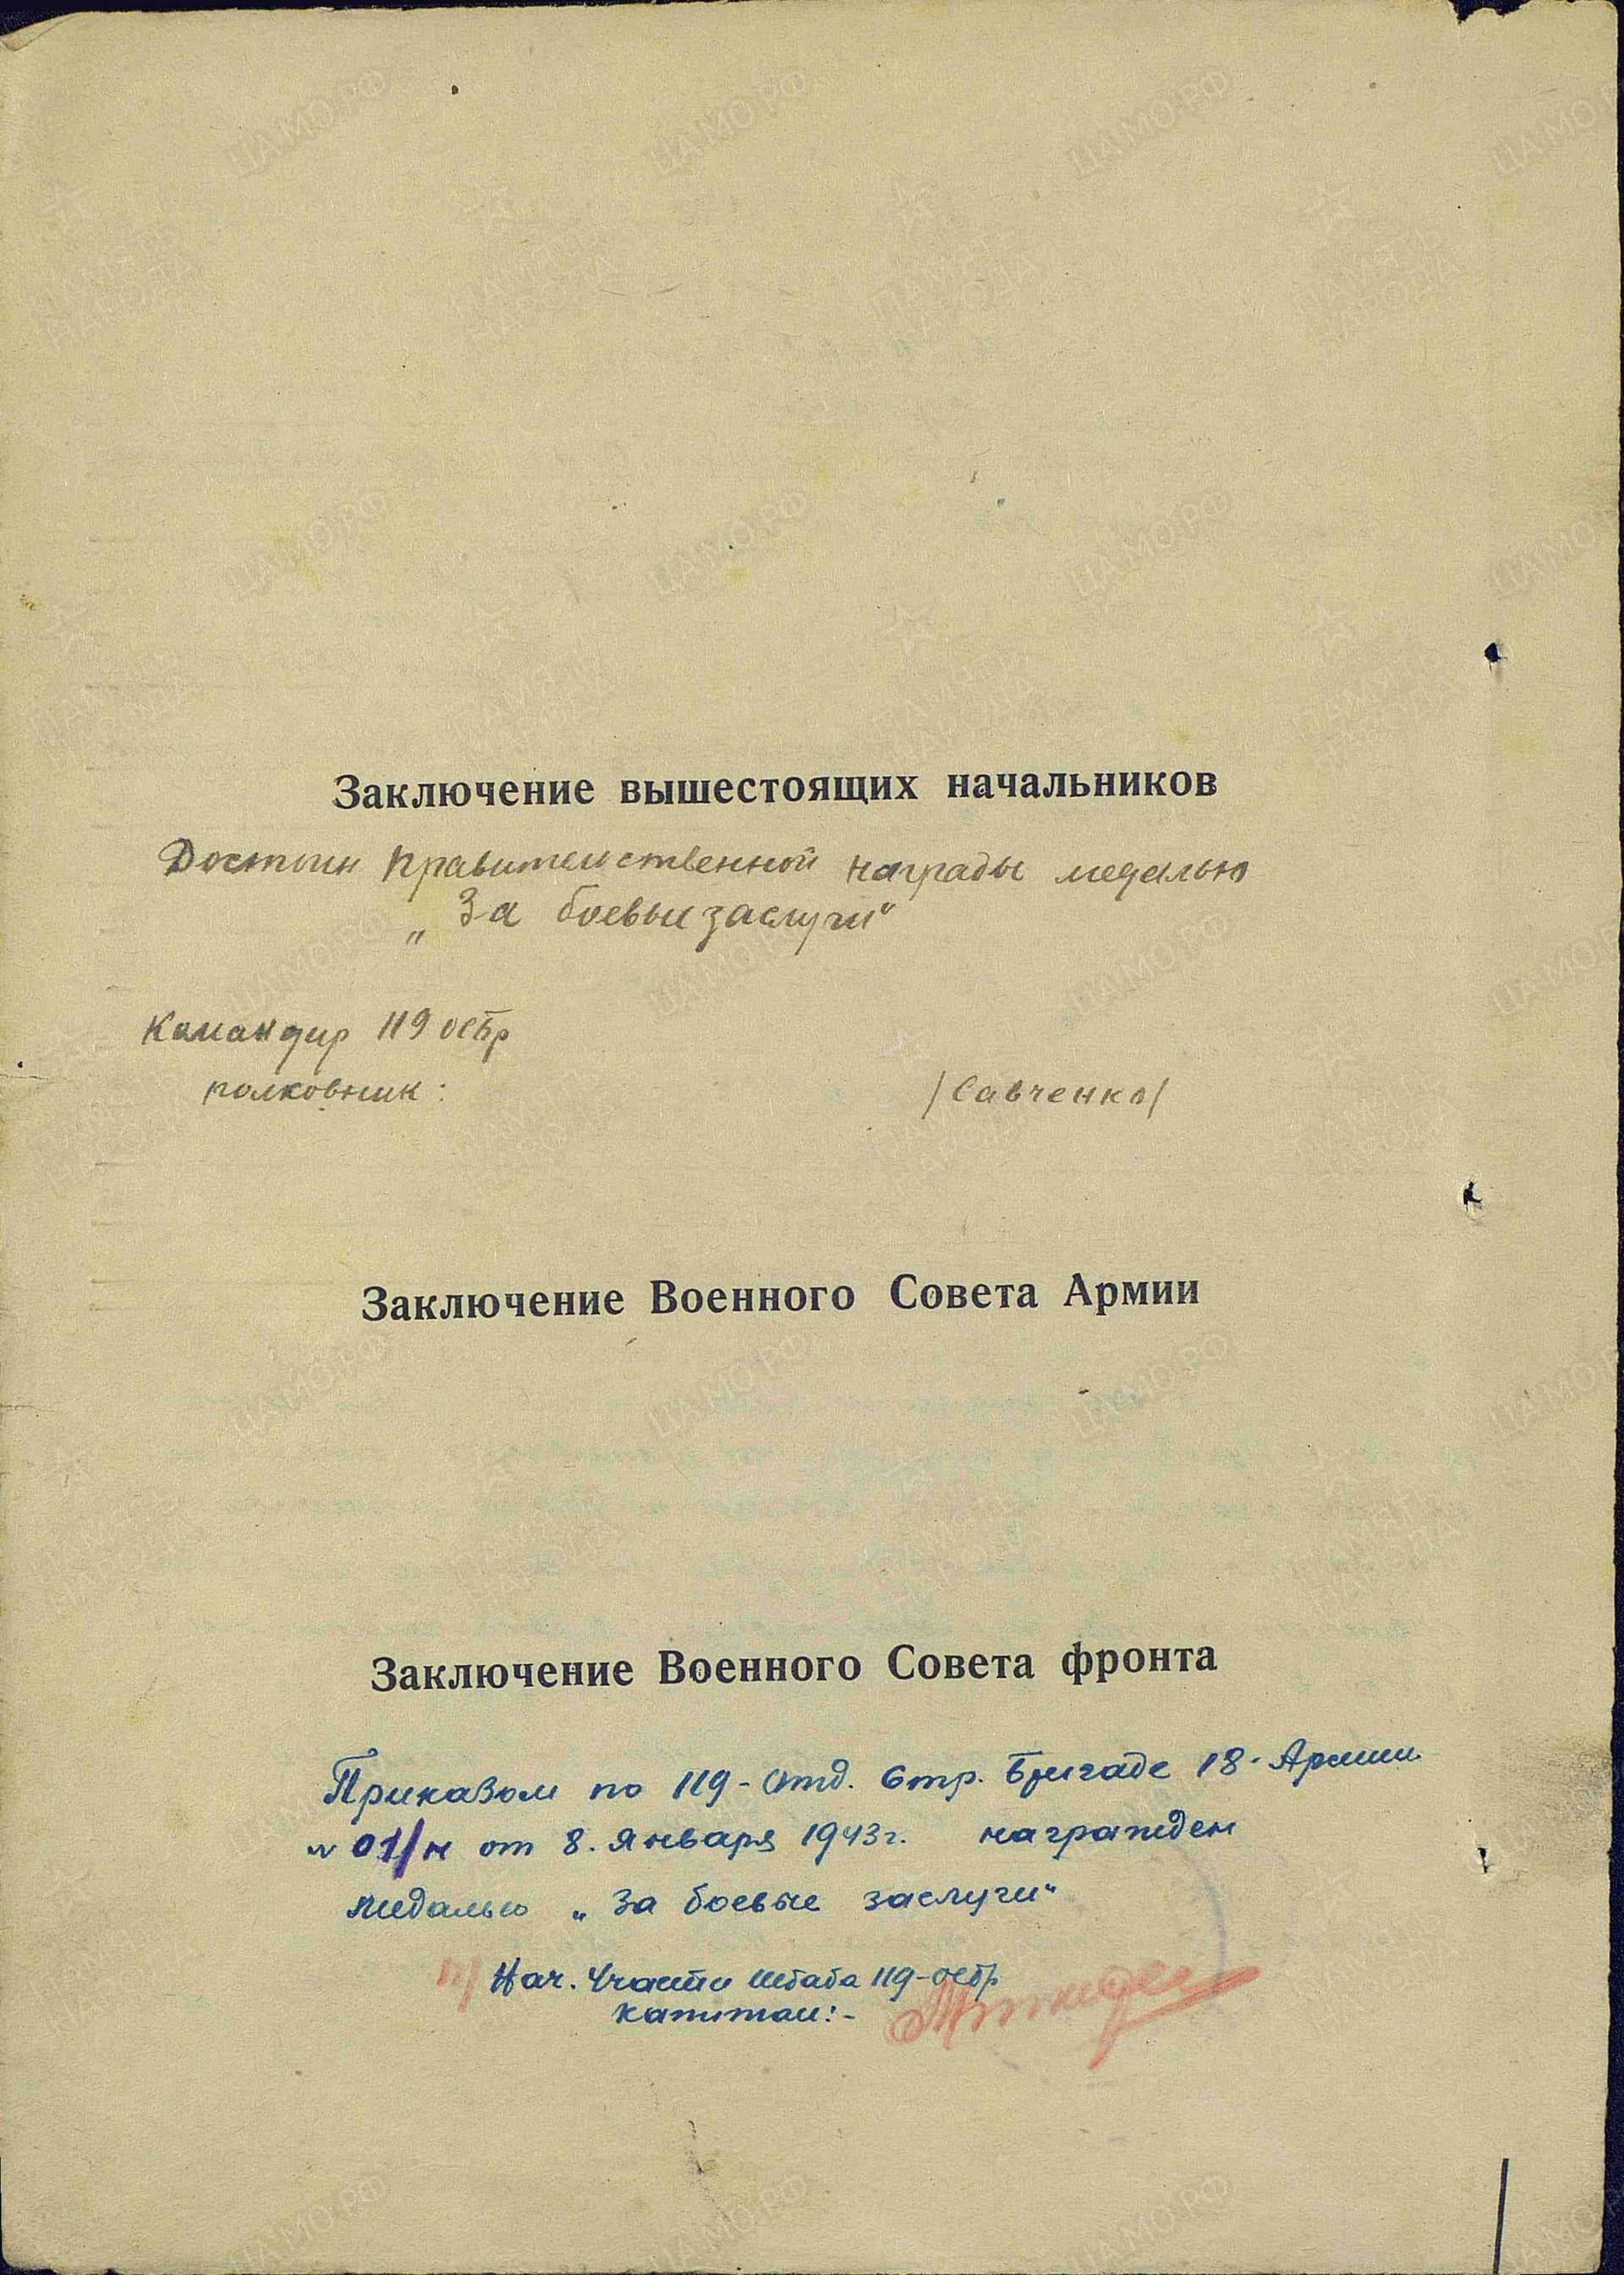 Заключение вышестоящих начальников
Достоин Правительственной награды медалью
„За боевые заслуги“
Командир 119 осбр
полковник:
/Савченко/
Заключение Военного Совета Армии
Заключение Военного Совета фронта
Приказом по 119-отд. Стр. Бригаде 18-Армии
№ 01/н от 8. Января 1943г. награжден
медалью „За боевые заслуги“
Нач. 4 части штаба 119-осбр
капитан:-
ЦАМО.РФ
ПАМЯТЬ
НАРОДА